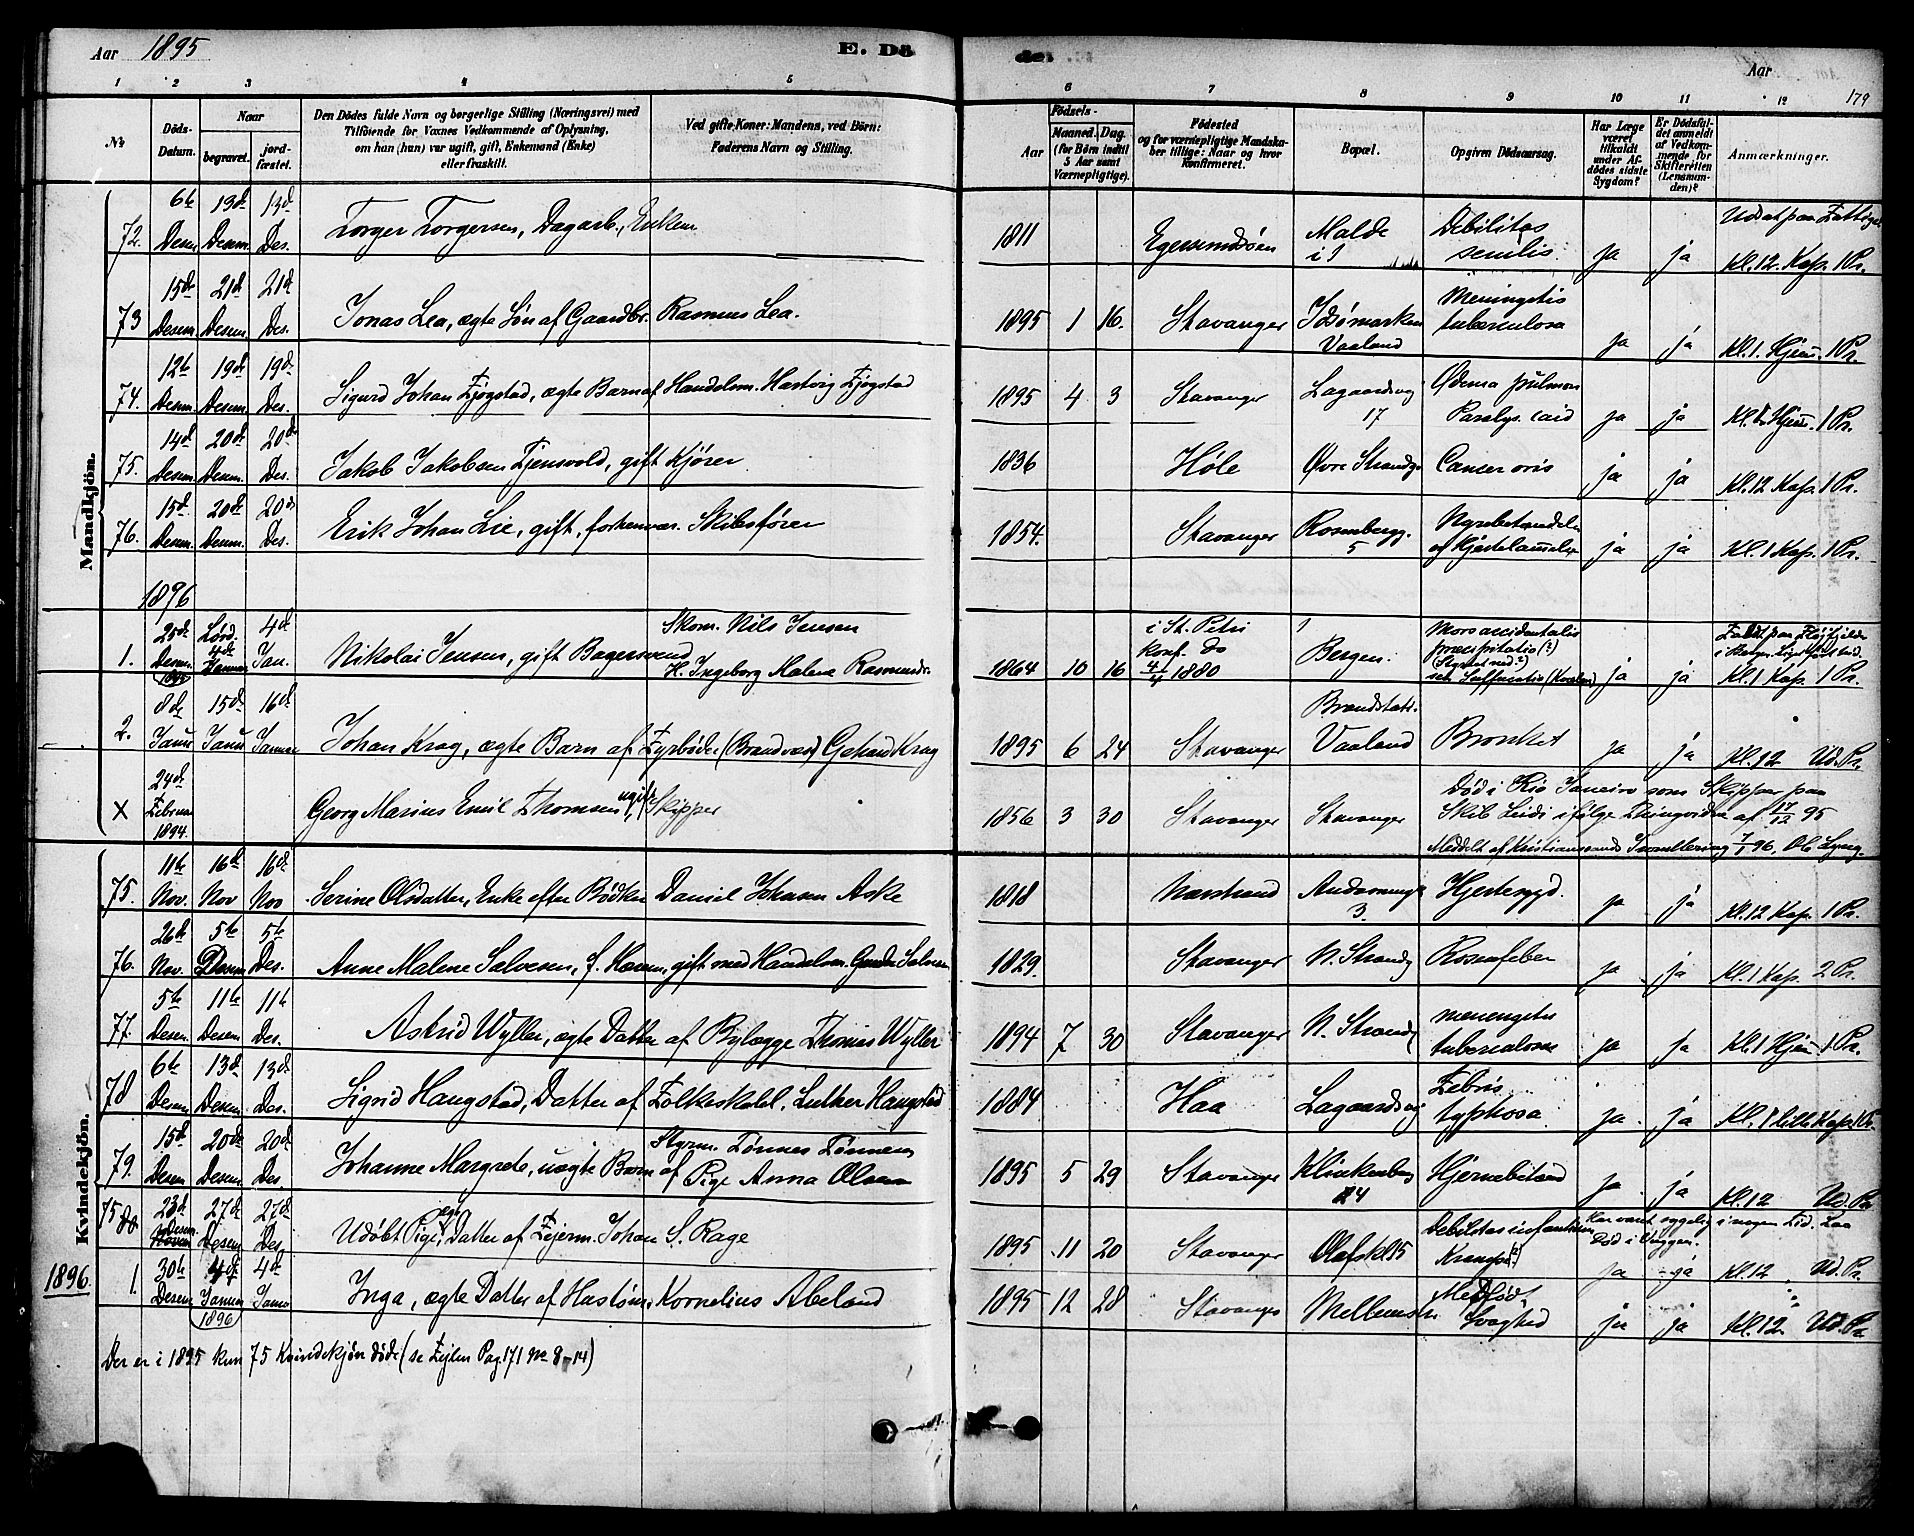 Aar 1895
E. Dö
de.
Aar
179
1 2 3 4 5 6 7 8 9 10 11 12
No.
Döds-Datum.
Naar
begravet.
jord-fæstet.
Den Dödes fulde Navn og borgerlige Stilling (Næringsvei) med
Tilföiende for Voxnes Vedkommende af Oplysning,
om han (hun) var ugift, gift, Enkemand (Enke)
eller fraskilt.
Ved gifte Koner: Mandens, ved Börn:
Faderens Navn og Stilling.
Födsels-
Aar
Maaned. Dag.
(for Börn indtil
5 Aar samt
Værnepligtige).
Födested
og for værnepligtige Mandska-
ber tillige: Naar og hvor
konfirmeret.
Bopæl.
Opgiven Dödsaarsag.
Har Læge
været
tilkaldt
under Af-
dödes sidste
Sygdom?
Er Dödsfal-
det anmeldt
af Vedkom-
mende for
Skifteretten
(Lensman-
den)?
Anmærkninger.
Mandkjön.
72. 6te Desem. 13d Desem. 13d Des. Torger Torgersen, Dagarb., Enkem 1811 Malde i Debilitas senilis. ja ja Kl. 12. Kap. 1 Pr.
73 15de Desem. 21d Desem. 21d Des. Jonas Lea, ægte Søn af Gaardbr. Rasmus Lea. 1895 1 16. Stavanger Vaaland Meningitis tuberculosa ja ja Kl. 1. Hjem. 1 Pr.
74. 12te Desem. 19de Desem. 19de Des. Sigurd Johan Fjøgstad, ægte Barn af Handelsm. Hartvig Fjøgstad 1895 4 3 Stavanger Lagaardsvg 17 Ødema pulmon Paralys. card ja ja Hjem. 1 Pr.
75. 14d Desem. 20de Desem. 20de Des. Jakob Jakobsen Tjensvold, gift Kjører 1836 Høle Øvre Strandg. Cancer oris ja ja Kl. 12 Kap. 1 Pr.
76. 15d. Desem. 20de Desem. 20de Des. Erik Johan Lie, gift, forhenvær. Skibsfører 1854. Stavanger Rosenbergg. 5 ja ja Kl. 1 Kap. 1 Pr.
1896
1. 25de Desem. 1895 Lørd. 4de Januar 4d Jan. Nikolai Jensen, gift Bagersvend Skom. Nils Jensen H. Ingeborg Malene Rasmusdr. 1864 10 16 i St. Petri konf. do 4/4 1880 Bergen. Mors accidentalis præcipitatio (?) (Styrtet ned?) ja ja Kl. 1 Kap. 1 Pr.
2. 8de Janu 15de Janu 16d Januar Johan Krag, ægte Barn af Fyrbøder (Brandvæs) Gerhard Krag 1895 6 24 Stavanger Brandstati. Vaaland Bronkit ja ja Kl. 12 Ud. Pr.
X 24d. Februar 1894. Georg Marius Emil Thomsen, ugift Skipper 1856 3 30 Stavanger Stavanger Død i Rio Janeiro som Skipper paa
Skib Leidi ifølge Thingvidne af 17/12 95
Meddelt af Kristianssands 7/1 96,
Kvindekjön.
75. 11te Nov. 16d Nov 16d Nov Serine Olsdatter, Enke efter Bødker Daniel Johnsen Aske 1818 Nærstrand 3. Hjertesygd. ja ja Kl. 12 Kap. 1 Pr.
76. 26de Nov. 5te Desem 5te Des. Anne Malene Salvesen, f. gift med Handelsm. Salvesen 1829. Stavanger N. Strandg Rosenfeber ja ja Kl. 1 Kap. 2 Pr.
77. 5te Desem. 11te Desem 11te Des. Astrid Wyller, ægte Datter af Bylægge Thomas Wyller 1894 7 30 Stavanger N. Strandg meningitis tuberculosa ja ja Kl. 1 Hjem 1 Pr.
78 6te Desem 13de Desem 13de Des. Sigrid Haugstad, Datter af Folkeskolel. Luther Haugstad 1884 Haa Lagaardsvg Febris typhosa. ja ja Kl. 1 lille Kap. 1 Pr.
79. 15d. Desem 20de Desem 20de Des. Johanne Margrete, uægte Barn af Styrm. Tønnes Tønnesen Pige Anna Olsen 1895 5 29 Stavanger Klinkenberg 24 Hjernebetænd ja. ja Kl. 12 Ud. Pr.
75 80 23d. Desem. 27de Desem 27de Des. Udøbt Pige, ægte Datter af Fejerm. Johan S. Rage 1895 11 20 Stavanger Olafskl. 15 Debilitas infantum Krampe (?) Har været sygelig i nogen Tid. Laa Død i Vuggen. ja ja Kl. 12 Ud. Pr.
1896. 1. 30te Desem 4d Januar (1896) 4de Janu Inga, ægte Datter af Kornelius Abeland 1895 12 28 Stavanger Mellemstr Medfødt Svaghed ja ja Kl. 12 Ud. Pr
Der er i 1895 kun 75 Kvindekjøn døde (se Fejlen Pag. 171 No 8-14)